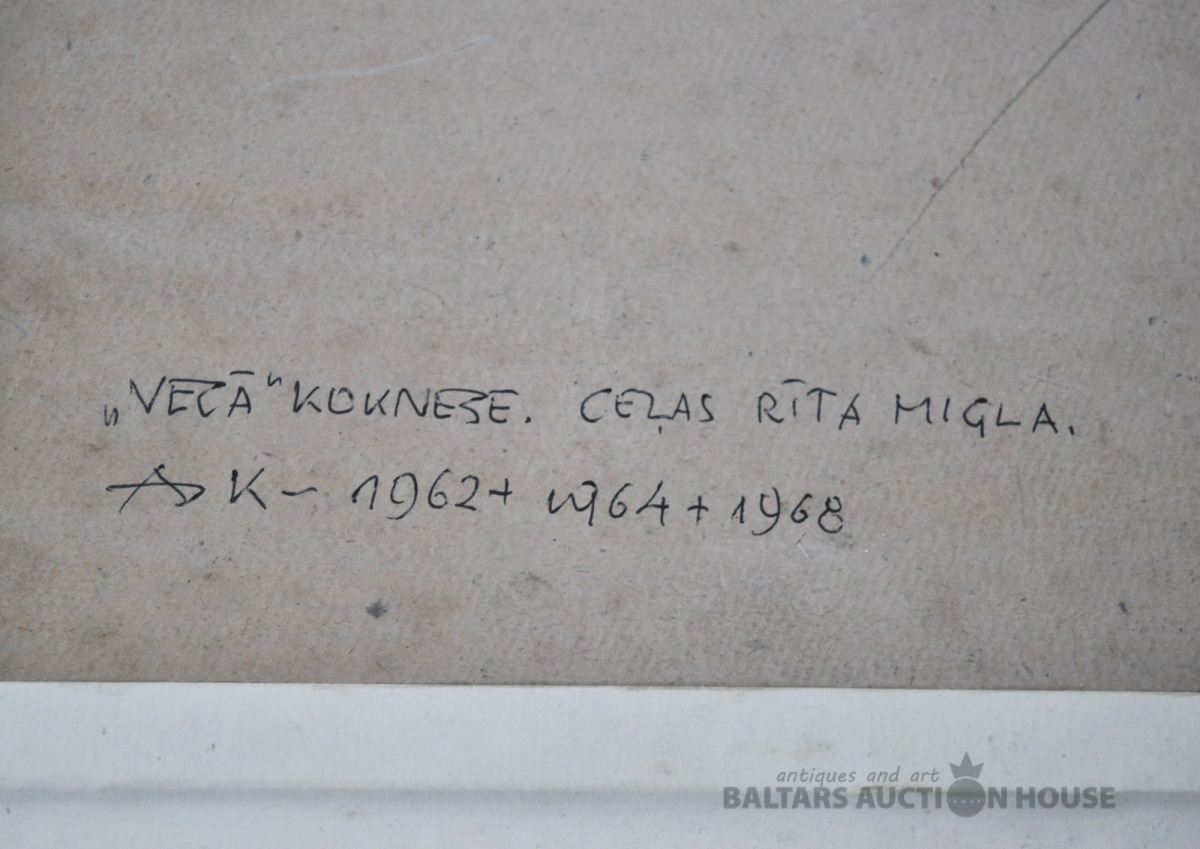 „VECĀ" KOKNESE. CEĻAS RĪTA MIGLA.
AK – 1962 + 1964 + 1968
antiques and art
BALTARS AUCTION HOUSE